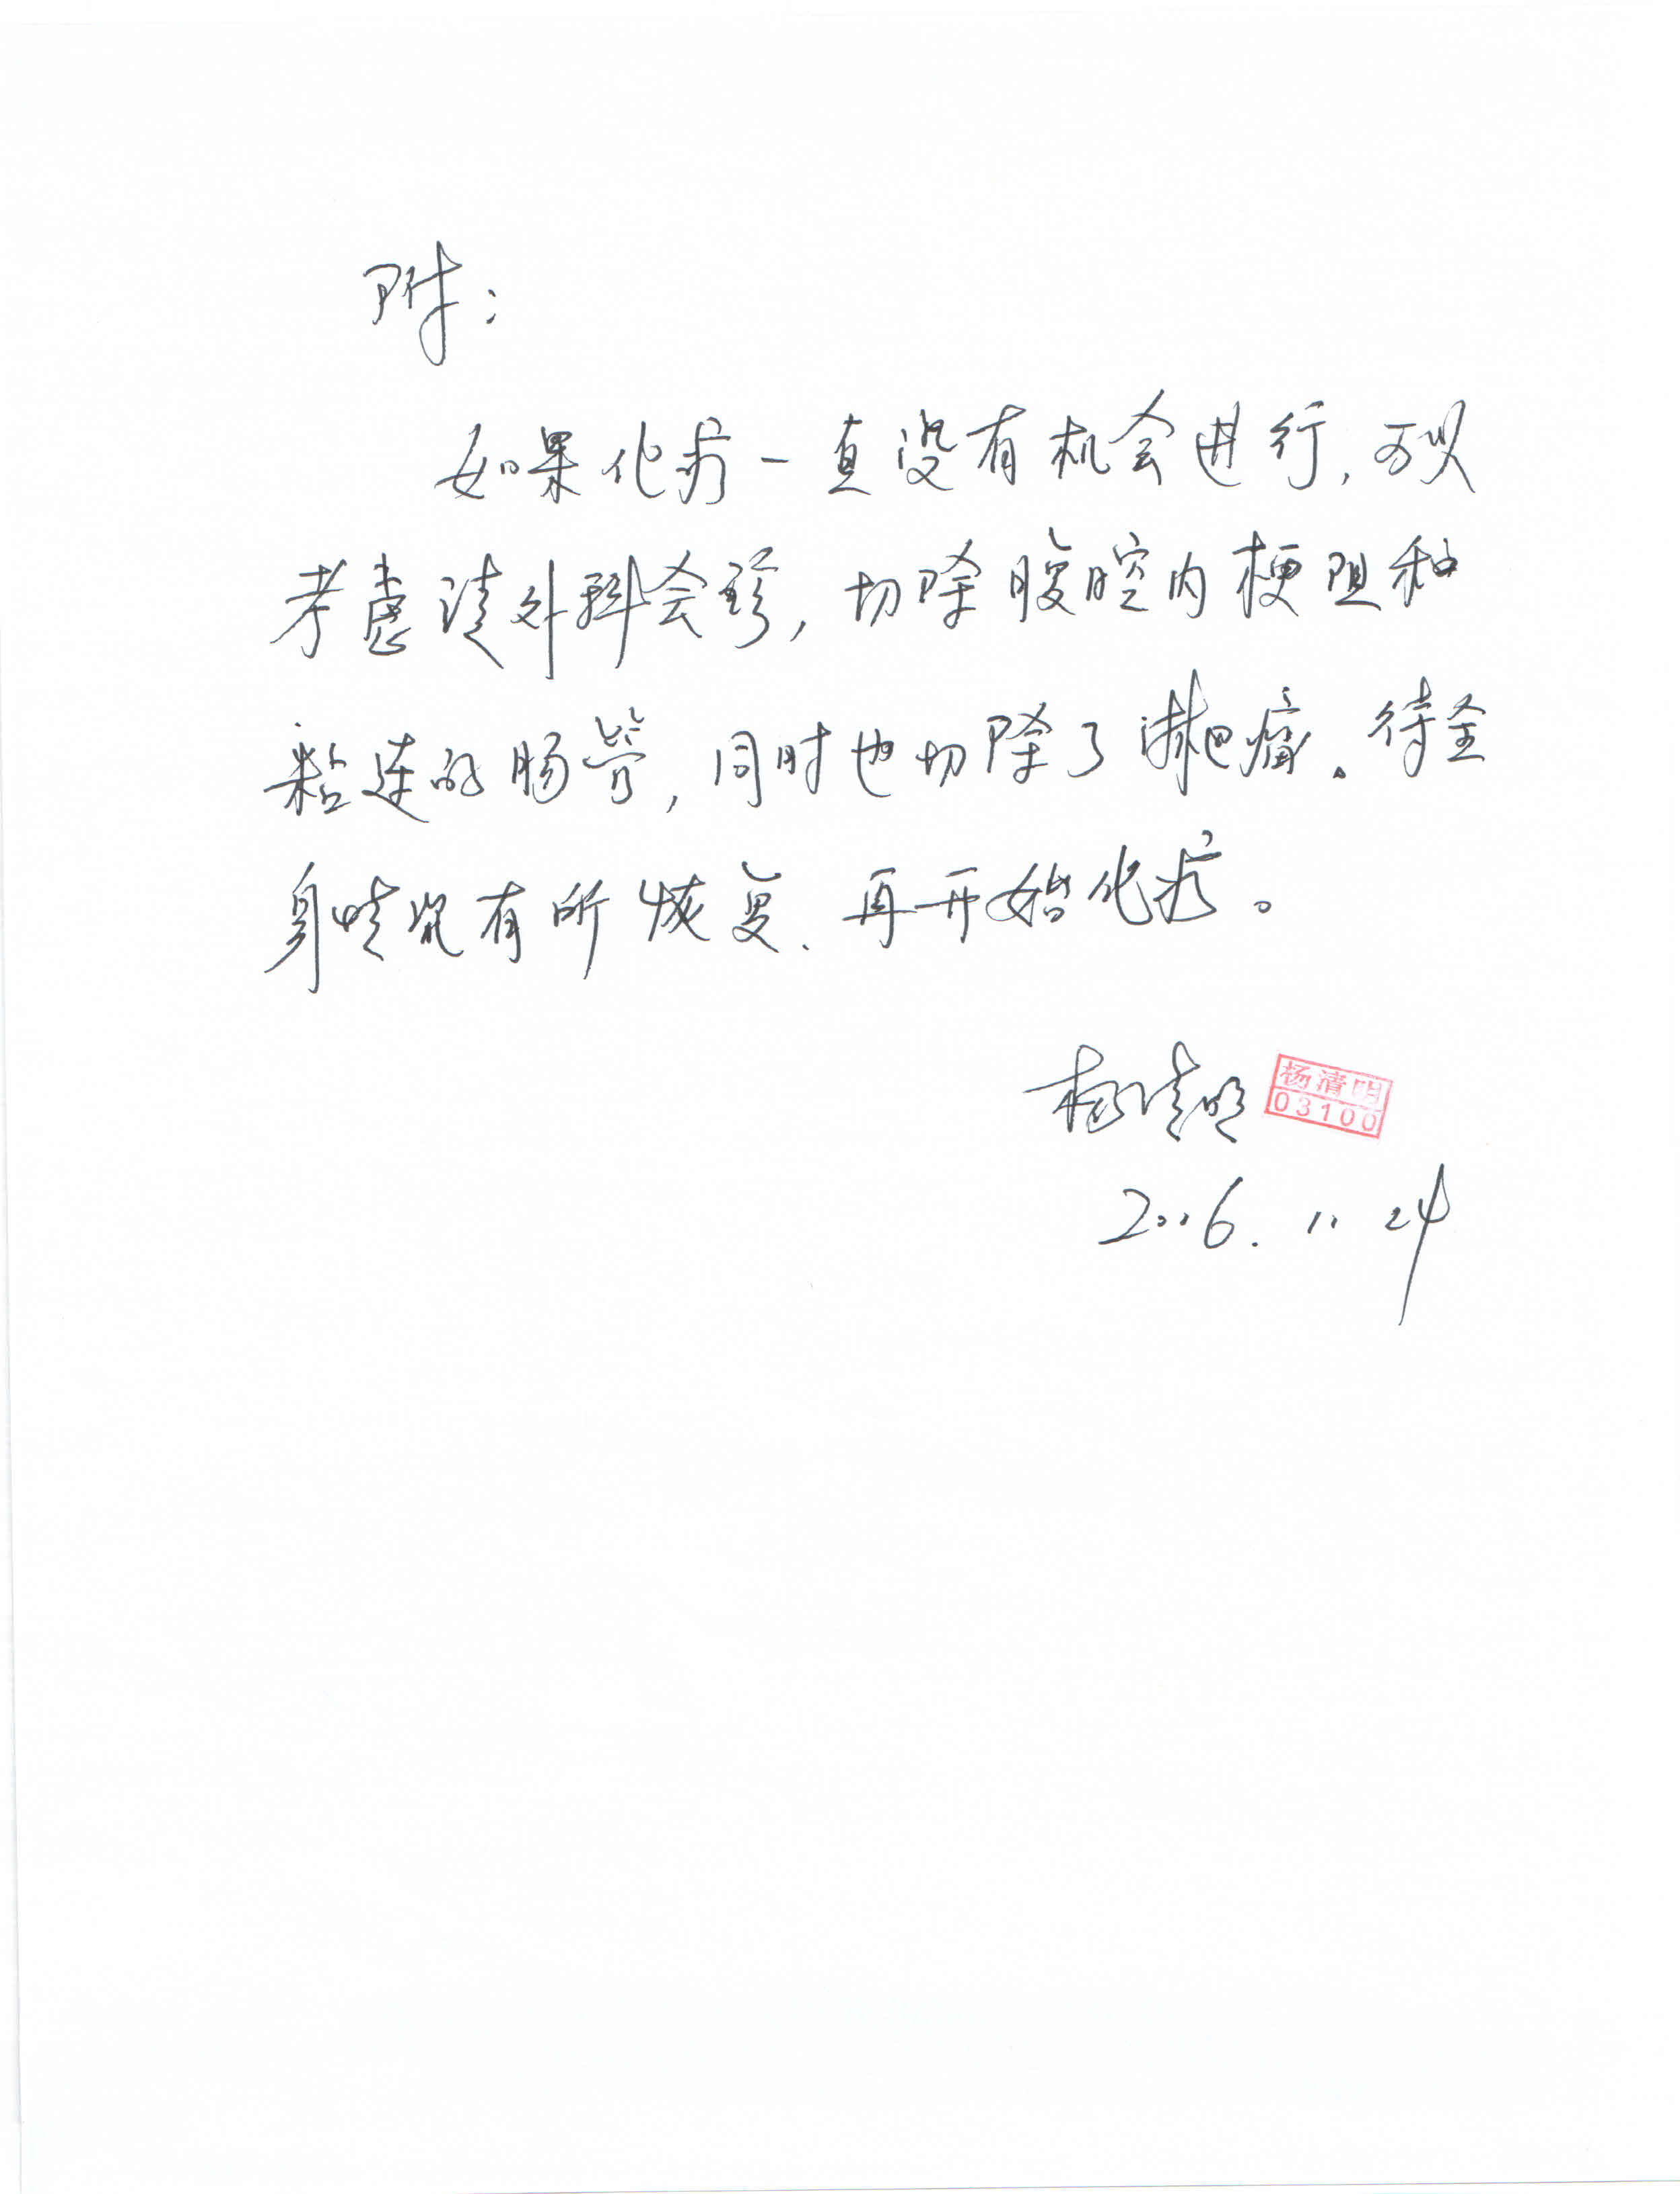 附：
如果化疗一直没有机会进行，可以
考虑请外科会诊，切除腹腔内梗阻和
粘连的肠管，同时也切除了淋巴瘤。待全
身情况有所恢复，再开始化疗。
杨清明
杨清明
03100
2006.11.24